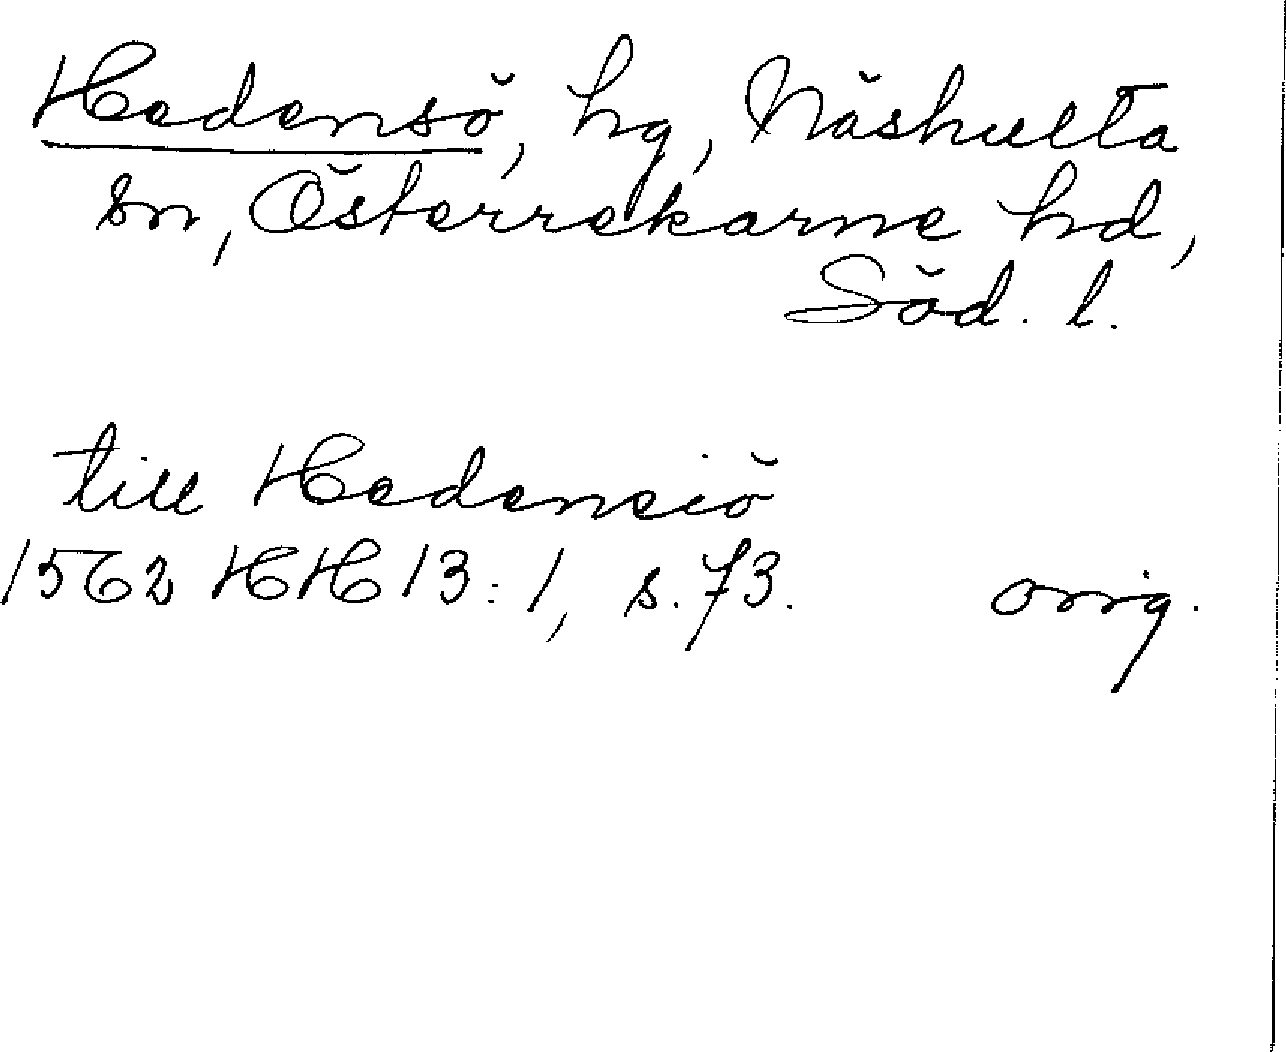 Hedensö, hg, Näshulta
sn, Österrekarne hd,
Söd. l.
till Hedeneiö
1562 HH 13:1, s. 73. orig.